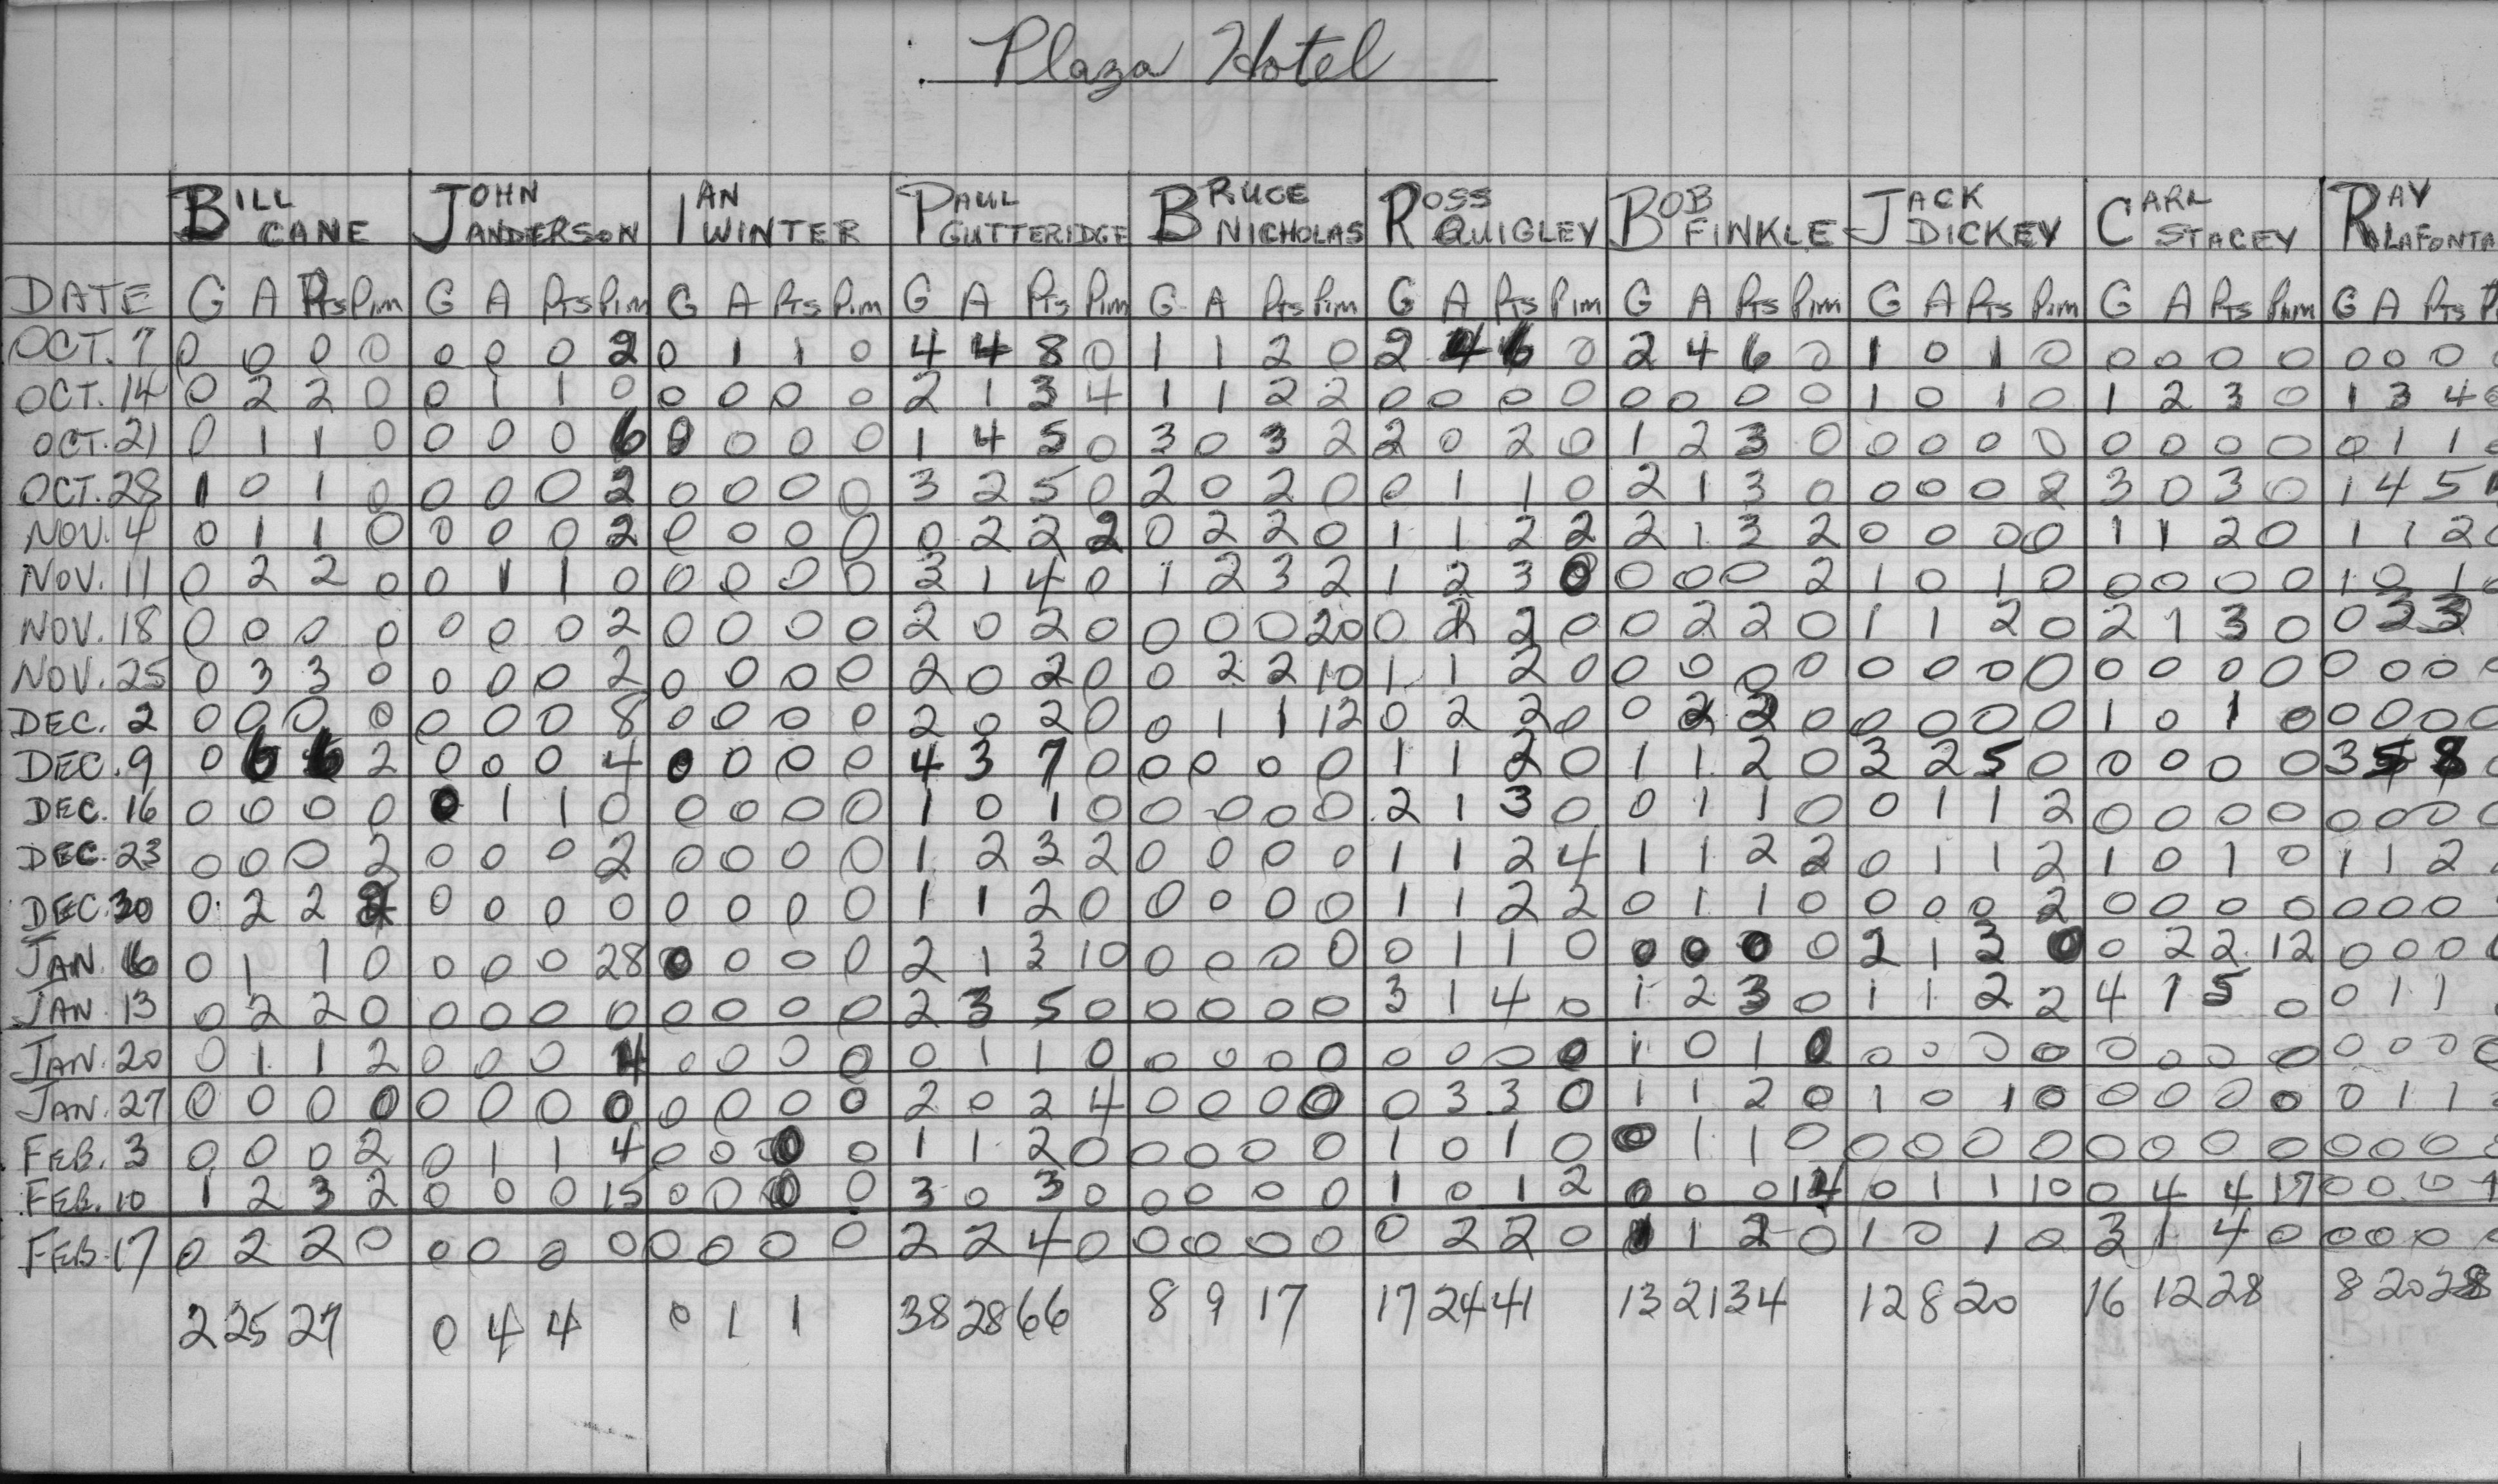 Plaza Hotel
BILL CANE JOHN ANDERSON IAN WINTER PAUL GUTTERIDGE BRUCE NICHOLAS ROSS QUIGLEY BOB FINKLE JACK DICKEY CARL STACEY RAY LAFONTA
DATE G A Pts Pim G A Pts Pim G A Pts Pim G A Pts Pim G A Pts Pim G A Pts Pim G A Pts Pim G A Pts Pim G A Pts Pim G A Pts P
OCT. 7 0 0 0 0 0 0 0 2 0 1 1 0 4 4 8 0 1 1 2 0 2 4 6 0 2 4 6 0 1 0 1 0 0 0 0 0 0 0 0 0
OCT. 14 0 2 2 0 0 1 1 0 0 0 0 0 2 1 3 4 1 1 2 2 0 0 0 0 0 0 0 0 1 0 1 0 1 2 3 0 1 3 4 0
OCT. 21 0 1 1 0 0 0 0 6 0 0 0 0 1 4 5 0 3 0 3 2 2 0 2 0 1 2 3 0 0 0 0 0 0 0 0 0 0 1 1 0
OCT. 28 1 0 1 0 0 0 0 2 0 0 0 0 3 2 5 0 2 0 2 0 0 1 1 0 2 1 3 0 0 0 0 2 3 0 3 0 1 4 5
NOV. 4 0 1 1 0 0 0 0 2 0 0 0 0 0 2 2 2 0 2 2 0 1 1 2 2 2 1 3 2 0 0 0 0 1 1 2 0 1 1 2 0
NOV. 11 0 2 2 0 0 1 1 0 0 0 0 0 3 1 4 0 1 2 3 2 1 2 3 0 0 0 0 2 1 0 1 0 0 0 0 0 1 0 1 0
NOV. 18 0 0 0 0 0 0 0 2 0 0 0 0 2 0 2 0 0 0 0 20 0 2 2 0 0 2 2 0 1 1 2 0 2 1 3 0 0 3 3
NOV. 25 0 3 3 0 0 0 0 2 0 0 0 0 2 0 2 0 0 2 2 10 1 1 2 0 0 0 0 0 0 0 0 0 0 0 0 0 0 0 0 0
DEC. 2 0 0 0 0 0 0 0 8 0 0 0 0 2 0 2 0 0 1 1 12 0 2 2 0 0 2 2 0 0 0 0 0 1 0 1 0 0 0 0 0
DEC. 9 0 6 6 2 0 0 0 4 0 0 0 0 4 3 7 0 0 0 0 0 1 1 2 0 1 1 2 0 3 2 5 0 0 0 0 0 3 5 8 0
DEC. 16 0 0 0 0 0 1 1 0 0 0 0 0 1 0 1 0 0 0 0 0 2 1 3 0 0 1 1 0 0 1 1 2 0 0 0 0 0 0 0 0
DEC. 23 0 0 0 2 0 0 0 2 0 0 0 0 1 2 3 2 0 0 0 0 1 1 2 4 1 1 2 2 0 1 1 2 1 0 1 0 1 1 2
DEC. 30 0 2 2 2 0 0 0 0 0 0 0 0 1 1 2 0 0 0 0 0 1 1 2 2 0 1 1 0 0 0 0 2 0 0 0 0 0 0 0
JAN. 6 0 1 1 0 0 0 0 28 0 0 0 0 2 1 3 10 0 0 0 0 0 1 1 0 0 0 0 0 2 1 3 0 0 2 2 12 0 0 0
JAN. 13 0 2 2 0 0 0 0 0 0 0 0 0 2 3 5 0 0 0 0 0 3 1 4 0 1 2 3 0 1 1 2 2 4 1 5 0 0 1 1
JAN. 20 0 1 1 2 0 0 0 4 0 0 0 0 0 1 1 0 0 0 0 0 0 0 0 0 1 0 1 0 0 0 0 0 0 0 0 0 0 0 0 0
JAN. 27 0 0 0 0 0 0 0 0 0 0 0 0 2 0 2 4 0 0 0 0 0 3 3 0 1 1 2 0 1 0 1 0 0 0 0 0 0 1 1
FEB. 3 0 0 0 2 0 1 1 4 0 0 0 0 1 1 2 0 0 0 0 0 1 0 1 0 0 1 1 0 0 0 0 0 0 0 0 0 0 0 0 0
FEB. 10 1 2 3 2 0 0 0 15 0 0 0 0 3 0 3 0 0 0 0 0 1 0 1 2 0 0 0 14 0 1 1 10 0 4 4 17 0 0 0
FEB. 17 0 2 2 0 0 0 0 0 0 0 0 0 2 2 4 0 0 0 0 0 0 2 2 0 1 1 2 0 1 0 1 0 3 1 4 0 0 0 0
2 25 27 0 4 4 0 1 1 38 28 66 8 9 17 17 24 41 13 21 34 12 8 20 16 12 28 8 20 28